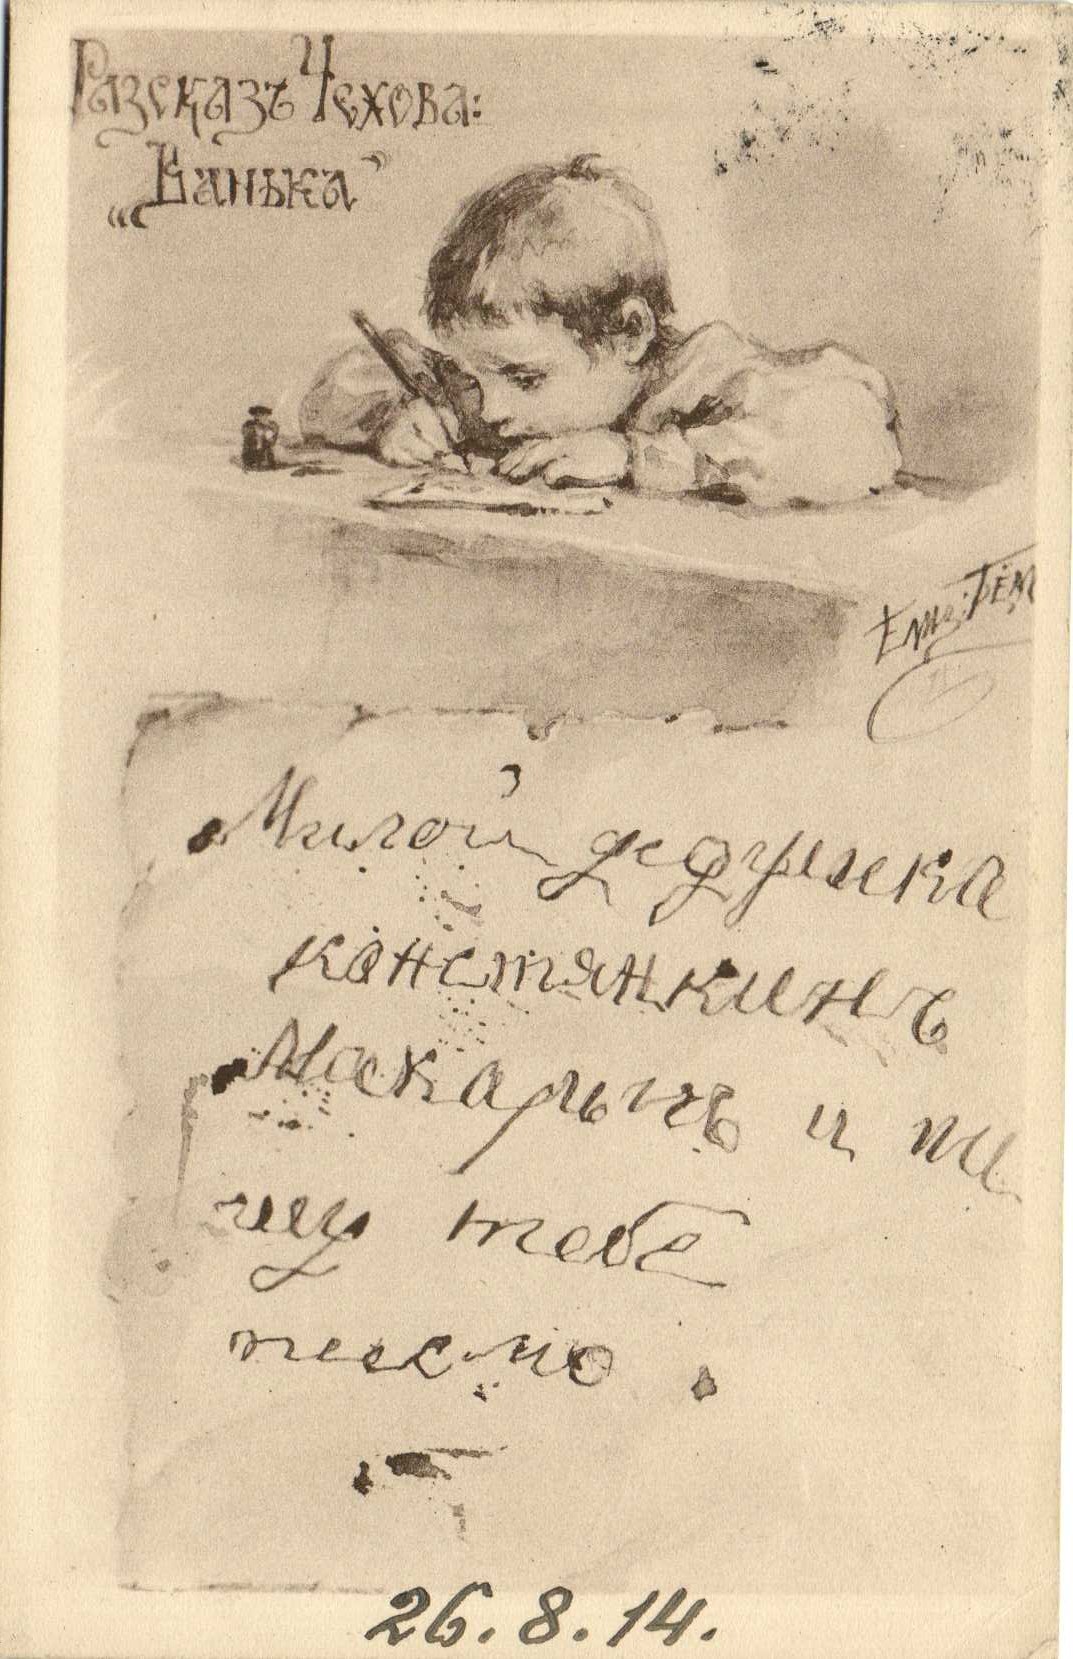 Разсказъ Чехова:
„Ванька"
Елиз. Бёмъ
Милой дедушка
констянкинъ
Макарычъ и пи
шу тебѣ
писмо.
26.8.14.